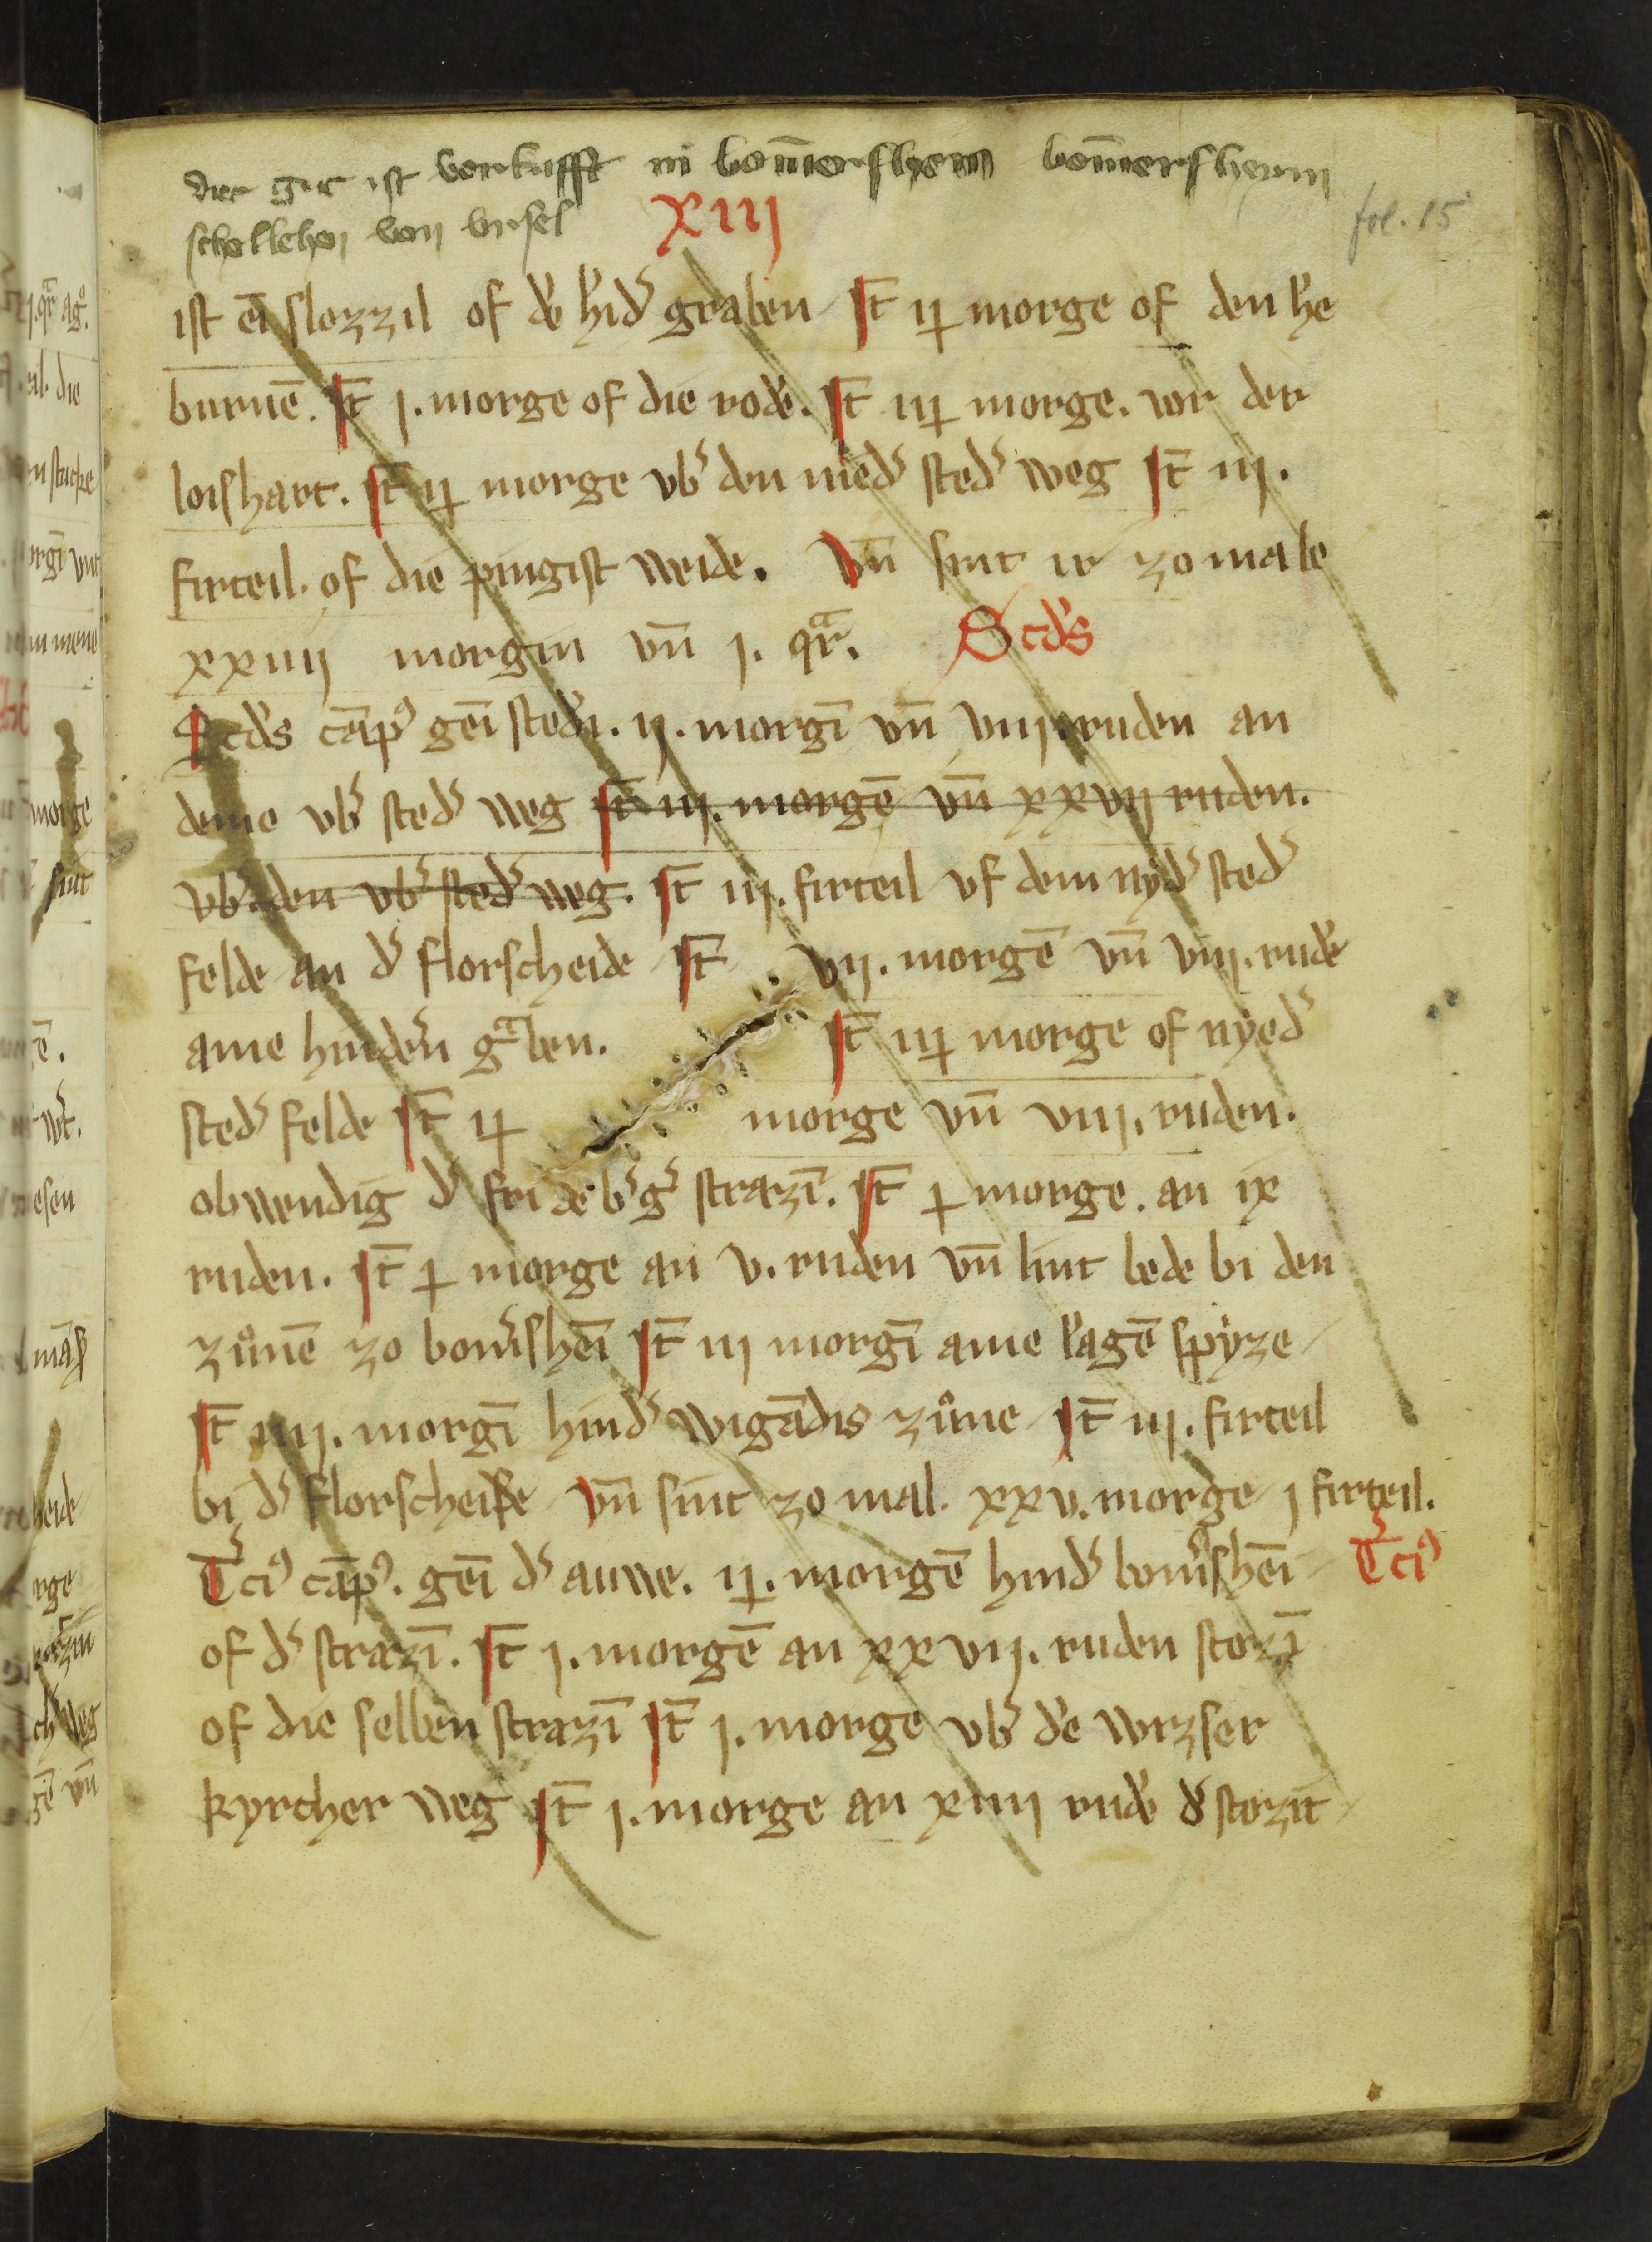 der gut ist verkufft in bom̄ersheym bom̄ersheym
schellehen von vrsel
XIIJ
fol. 15
ist eī slozzil of dē hīdˢ graben Jt̄ ıȷ morge of den he
burnē. Jt̄ j. morge of die rodē. Jt̄ iij morge. vor der
loishart. Jt̄ ij morge vbˢ den niedˢ stedˢ weg Jt̄ iij.
firteil. of die pingist weide. Vn̄ sint ir zo male
xxiiij morgin vn̄ j. qr̄.
Scd's
Scd's cāpꝰ geī stedī. ij. morgī vn̄ viij. ruden an
deme vbˢ stedˢ weg Jt̄ iij. morgē vn̄ xxvij ruden.
vbˢ den vbˢ stedˢ weg. Jt̄ iij. firteil vf dem nydˢ stedˢ
felde an dˢ florscheide Jt̄ vij. morgē vn̄ viij. rudē
ame hindēn gᵃben. Jt̄ iij morge of nyedˢ
stedˢ felde Jt̄ ij morge vn̄ viij. ruden.
obwendig dˢ fridebˢgˢ strazī. Jt̄ j morge. an ix
ruden. Jt̄ j morge an v. ruden vn̄ lint bede bi den
zunē zo bomˢsheī Jt̄ iij morgī ame kˢagē spyze
Jt̄ iiij. morgī hindˢ wigādis zune Jt̄ iij. firteil
bi dˢ florscheide Vn̄ sint zo mal. xxv. morge j firteil.
Tˢciꝰ cāpꝰ. geī dˢ auwe. ij. morgē hindˢ bomˢsheī
Tˢciꝰ
of dˢ strazī. Jt̄ j. morgē an xxvij. ruden stozī
of die selben strazī Jt̄ j. morge vbˢ dē wrzser
kyrcher weg Jt̄ j. morge an xiiij rudē dˢ stozit